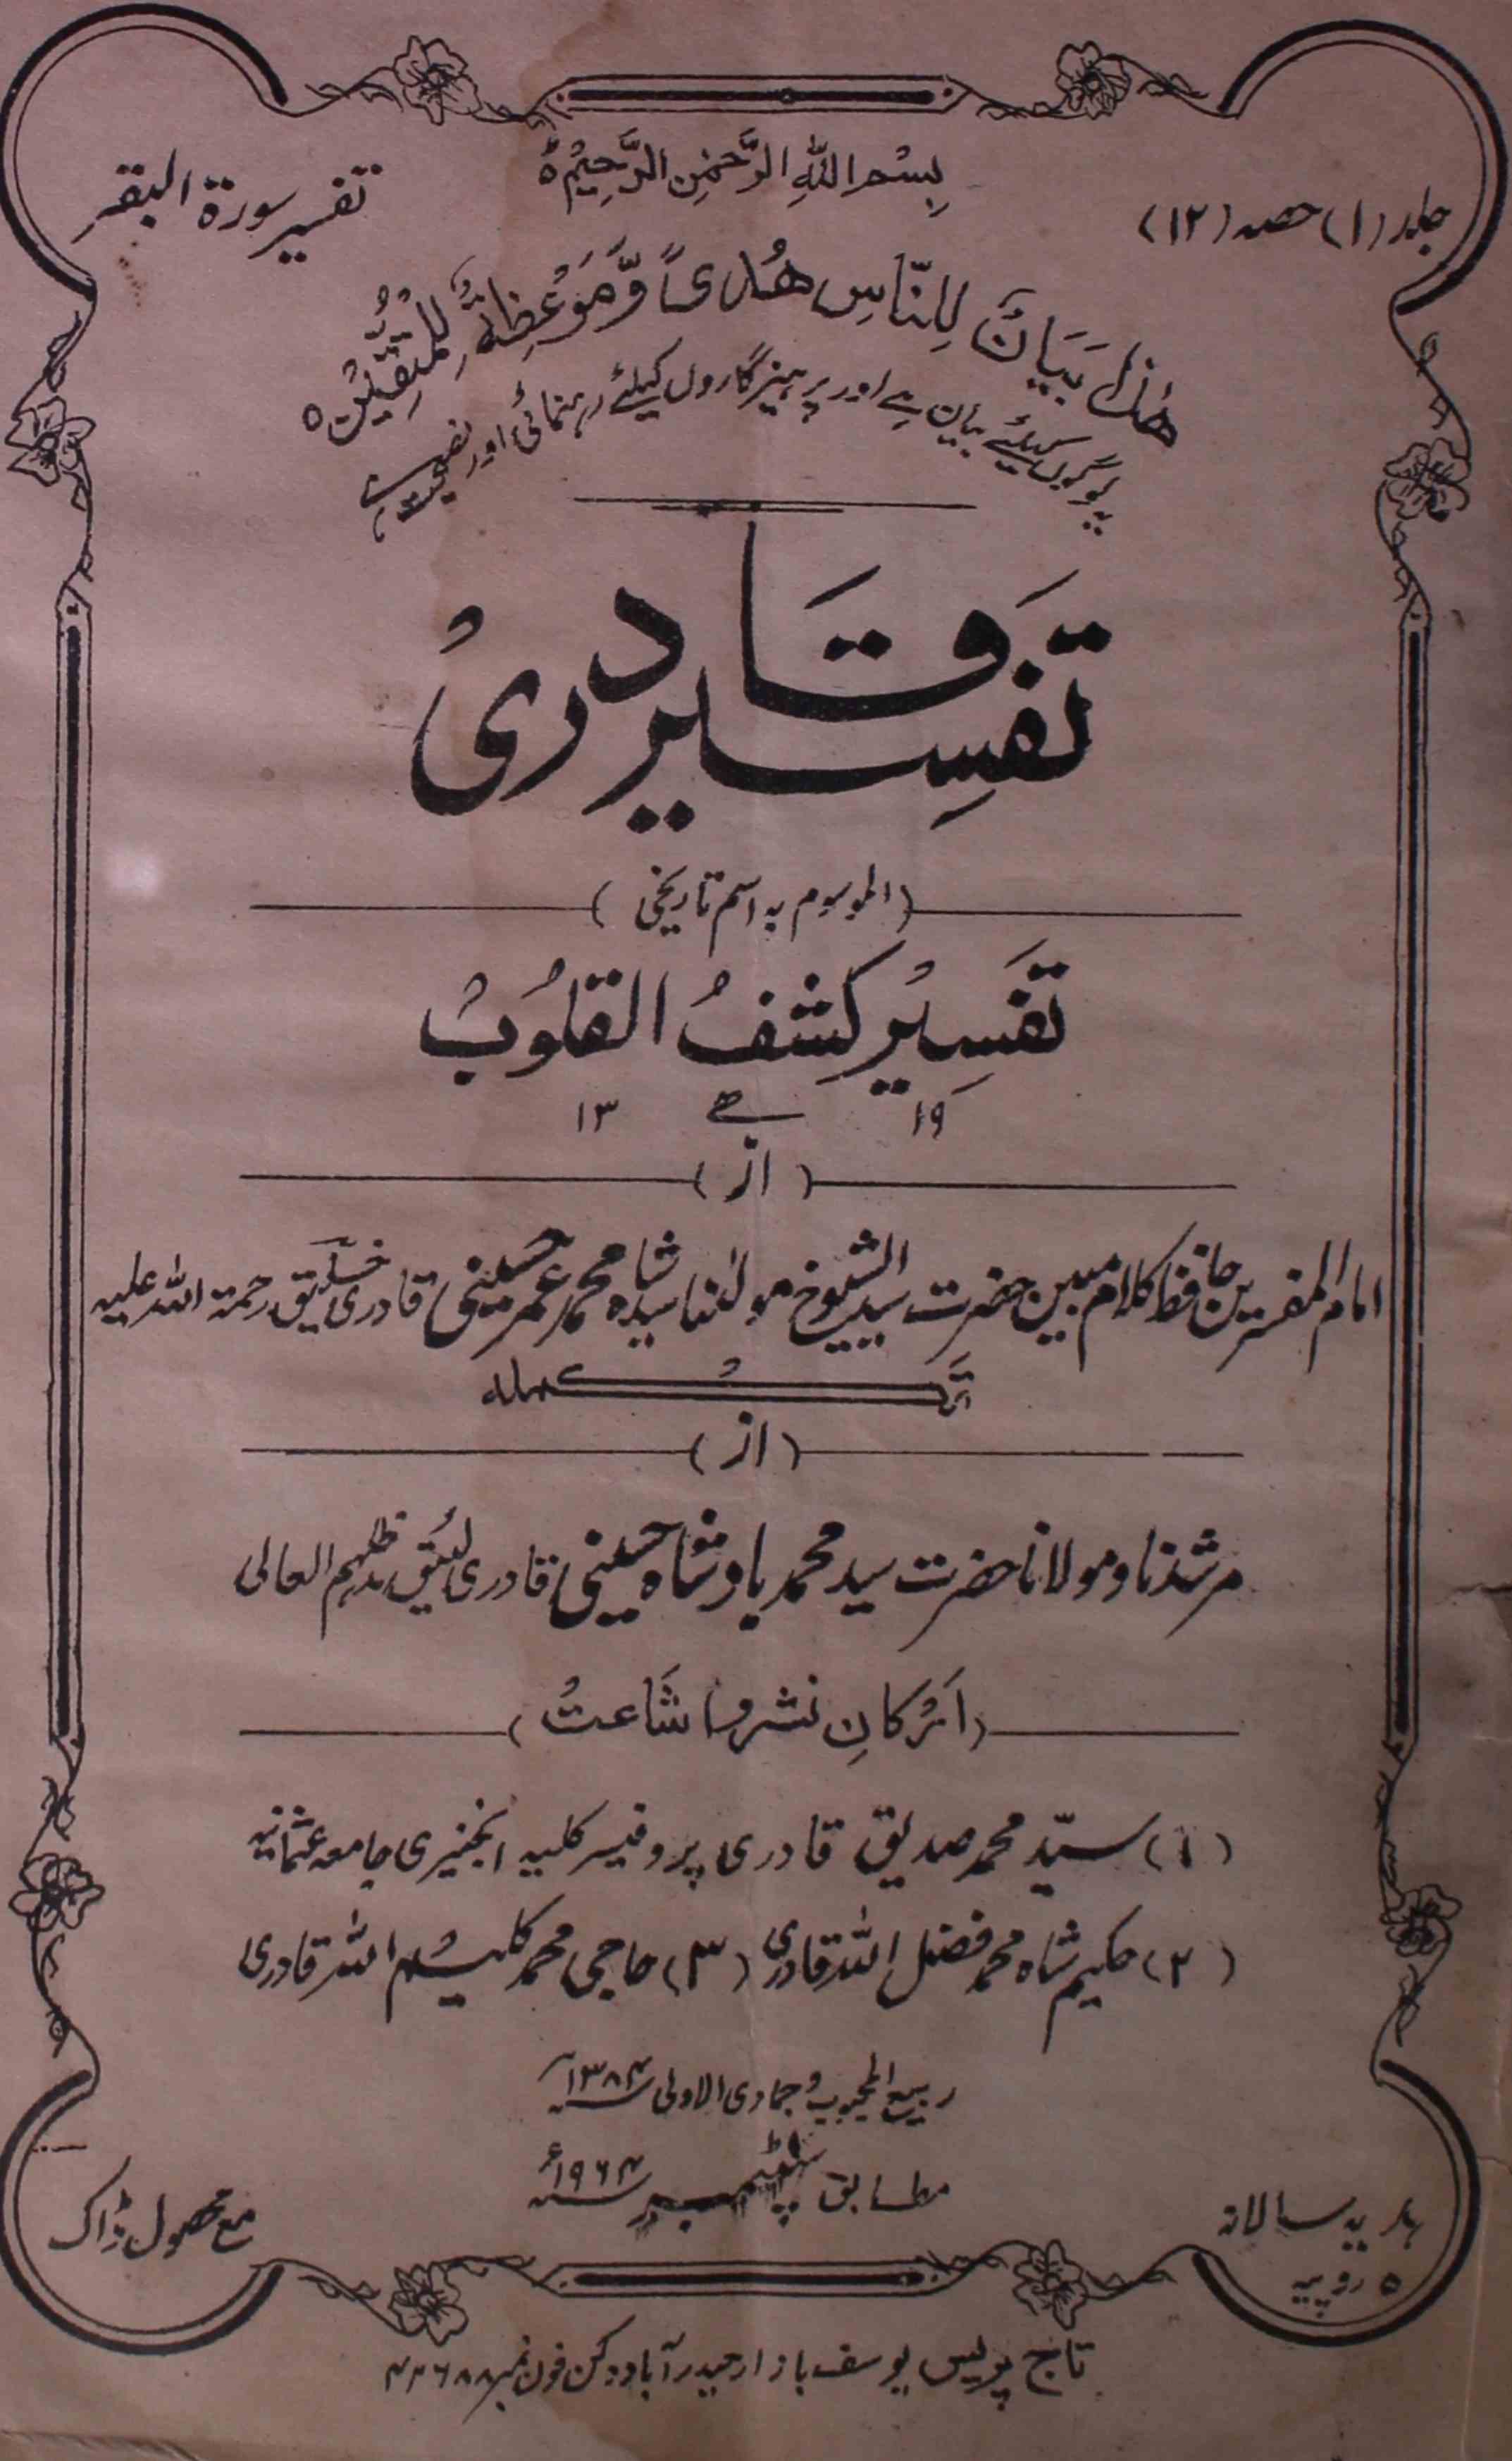 بِسْمِ اللّٰهِ الرَّحْمٰنِ الرَّحِيْمِ ٥
جلد (۱) حصہ (۱۲)
تفسیر سورۃ البقر
هٰذَا بَيَانٌ لِلنَّاسِ هُدًى وَّمَوْعِظَةٌ لِّلْمُتَّقِيْنَ ٥
یہ لوگوں کیلئے بیان ہے اور پرہیزگاروں کیلئے رہنمائی اور نصیحت ہے
تفسیر قادری
(الموسوم بہ اسم تاریخی)
تفسیر کشف القلوب
۱۹ ھے ۱۳
(از)
امام المفسرین حافظ کلام مبین حضرت سید الشیوخ مولٰنا سید شاہ محمد عمر حسینی قادری خلیق رحمۃ اللہ علیہ
تکملہ
(از)
مرشدنا و مولانا حضرت سید محمد بادشاہ حسینی قادری لئیق مدظلہم العالی
(ارکانِ نشر و اشاعت)
(۱) سیّد محمد صدیق قادری پروفیسر کلیہ انجنیری جامعہ عثمانیہ
(۲) حکیم شاہ محمد فضل اللہ قادری (۳) حاجی محمد کلیم اللہ قادری
ربیع المحبوب و جمادی الاولی ۱۳۸۴ھ
مطابق سپٹمبر ۱۹۶۴ء
ہدیہ سالانہ
۵ روپیہ
مع محصول ڈاک
تاج پریس یوسف بازار حیدرآباد دکن فون نمبر ۴۳۶۸۸